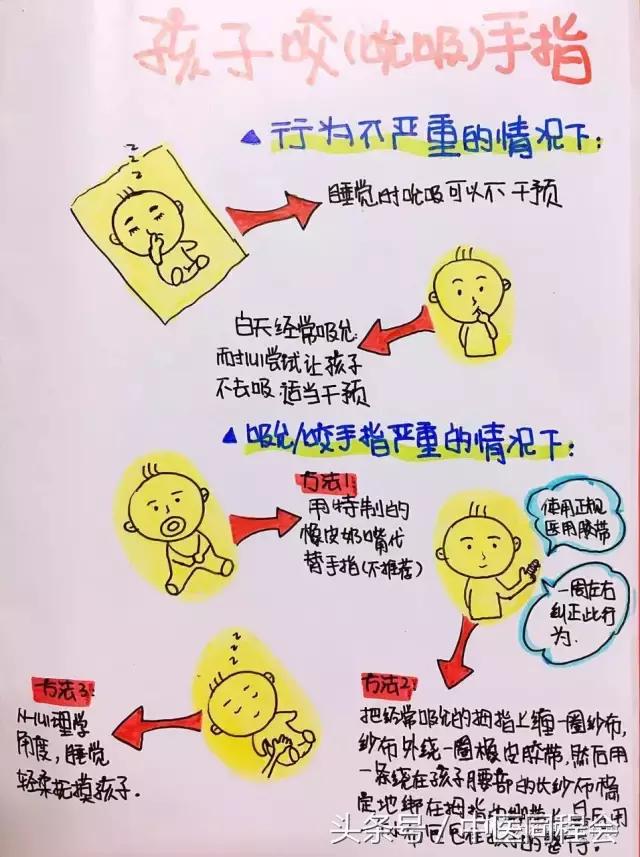 孩子咬(吮吸)手指
▲行为不严重的情况下:
睡觉时吮吸可以不干预
白天经常吸吮
耐心尝试让孩子
不去吸 适当干预
▲吸吮/咬手指严重的情况下:
方法1:
用特制的
橡皮奶嘴代
替手指(不推荐)
使用正规
医用胶带
一周左右
纠正此行
为.
方法3:
从心理学
角度,睡觉
轻柔抚摸孩子.
方法2:
把经常吸吮的拇指上缠一圈纱布,
纱布外绕一圈橡皮胶带,然后用
一条绕在孩子腰部的长纱布稳
定地绑在拇指的
头条号 / 中医同程会